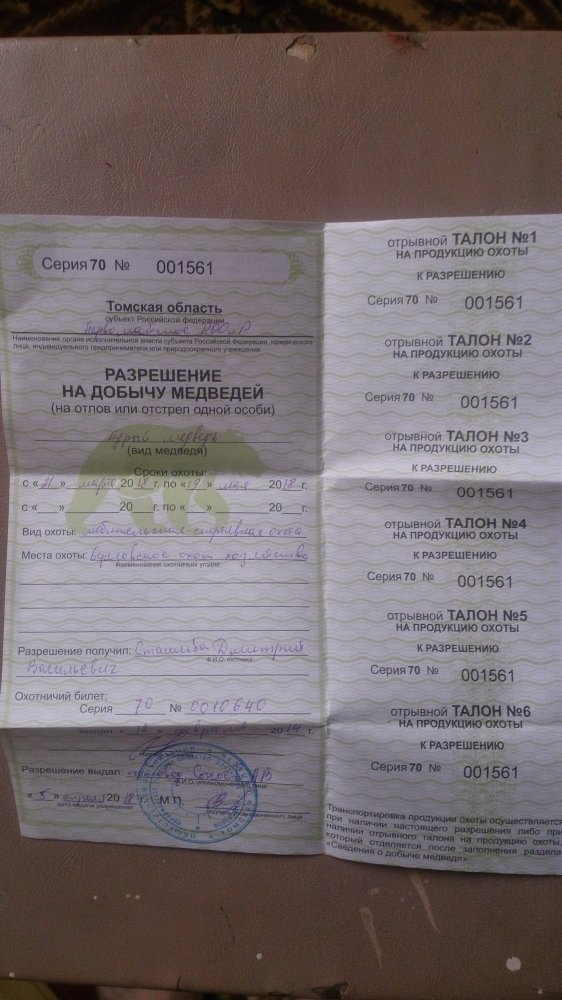 Серия 70 № 001561
Томская область
субъект Российской Федерации
Первомайское РООиР
Наименование органа исполнительной власти субъекта Российской Федерации, юридического
лица, индивидуального предпринимателя или природоохранного учреждения
РАЗРЕШЕНИЕ
НА ДОБЫЧУ МЕДВЕДЕЙ
(на отлов или отстрел одной особи)
Бурый медведь
(вид медведя)
Сроки охоты:
с «21» марта 2018 г. по «19» мая 2018 г.
с «___» ______ 20__ г. по «___» ______ 20__ г.
Вид охоты: любительская-спортивная охота
Места охоты: Береговское охот хозяйство
наименование охотничьих угодий
Разрешение получил: Дмитрий
Ф.И.О. охотника
Васильевич
Охотничий билет:
Серия 70 № 0010640
выдан «12» февраля 2014 г.
Разрешение выдал:
Ф.И.О. уполномоченного лица
«5» апреля 2018
дата выдачи разрешения
М.П.
отрывной ТАЛОН №1
НА ПРОДУКЦИЮ ОХОТЫ
К РАЗРЕШЕНИЮ
Серия 70 № 001561
отрывной ТАЛОН №2
НА ПРОДУКЦИЮ ОХОТЫ
К РАЗРЕШЕНИЮ
Серия 70 № 001561
отрывной ТАЛОН №3
НА ПРОДУКЦИЮ ОХОТЫ
К РАЗРЕШЕНИЮ
Серия 70 № 001561
отрывной ТАЛОН №4
НА ПРОДУКЦИЮ ОХОТЫ
К РАЗРЕШЕНИЮ
Серия 70 № 001561
отрывной ТАЛОН №5
НА ПРОДУКЦИЮ ОХОТЫ
К РАЗРЕШЕНИЮ
Серия 70 № 001561
отрывной ТАЛОН №6
НА ПРОДУКЦИЮ ОХОТЫ
К РАЗРЕШЕНИЮ
Серия 70 № 001561
Транспортировка продукции охоты осуществляется
при наличии настоящего разрешения либо при
наличии отрывного талона на продукцию охоты,
который отделяется после заполнения раздела
«Сведения о добыче медведя»